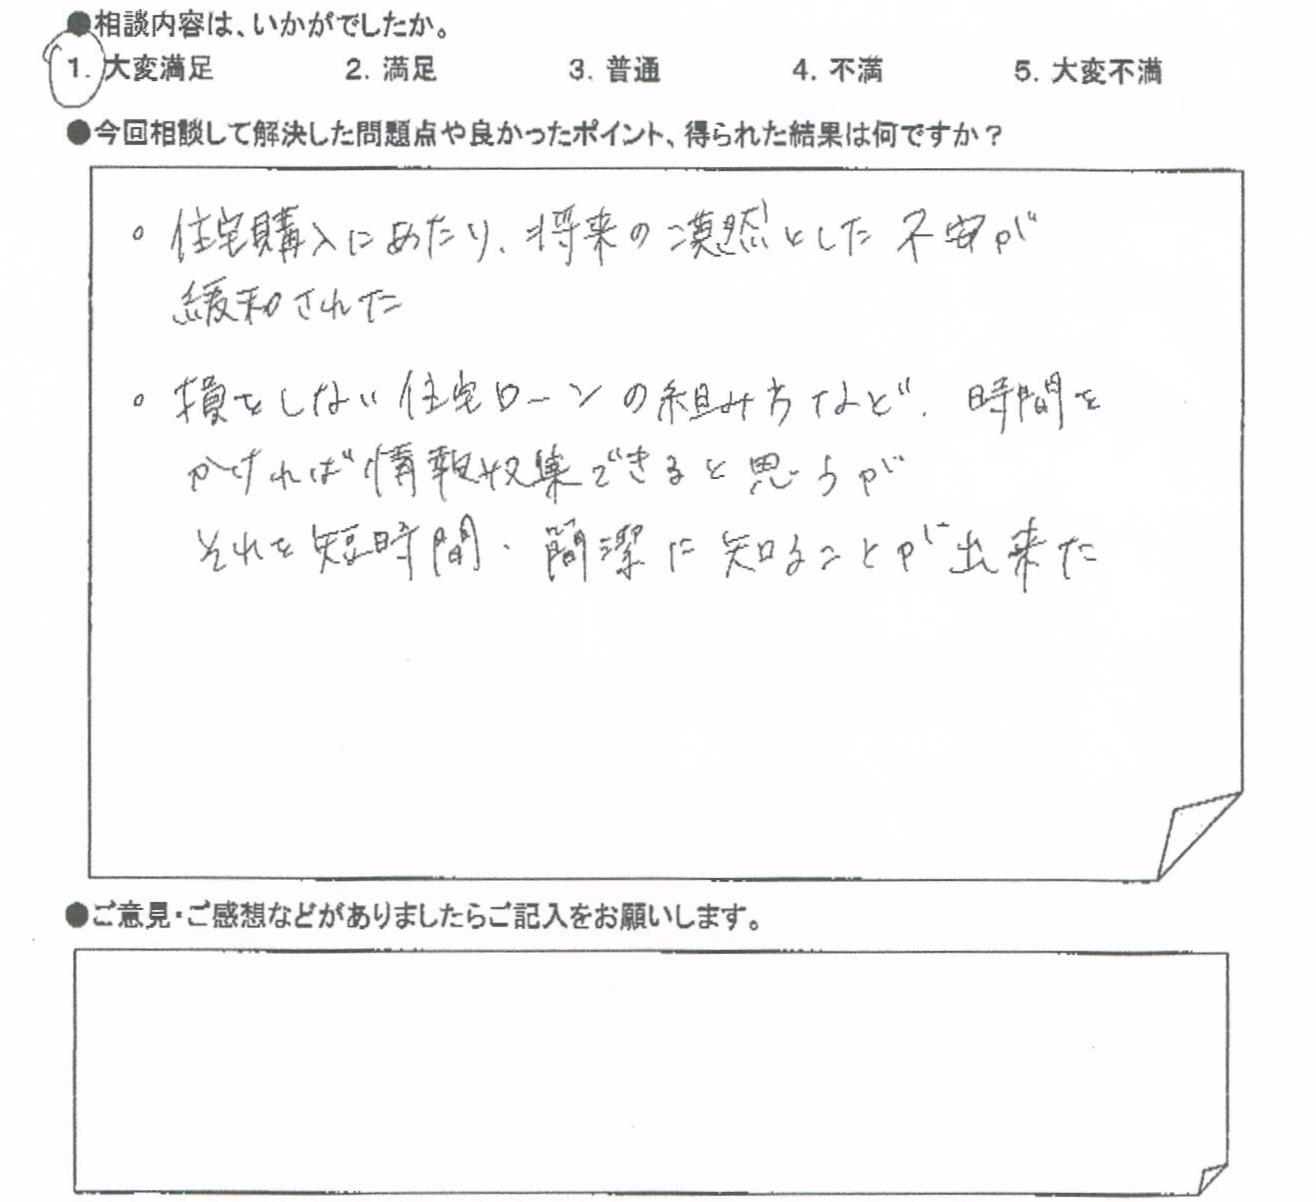 ●相談内容は、いかがでしたか。
1. 大変満足 2. 満足 3. 普通 4. 不満 5. 大変不満
●今回相談して解決した問題点や良かったポイント、得られた結果は何ですか？
。住宅購入にあたり、将来の漠然とした不安が
緩和された
。損をしない住宅ローンの組み方など、時間を
かければ情報収集できると思うが
それを短時間、簡潔に知ることが出来た
●ご意見・ご感想などがありましたらご記入をお願いします。